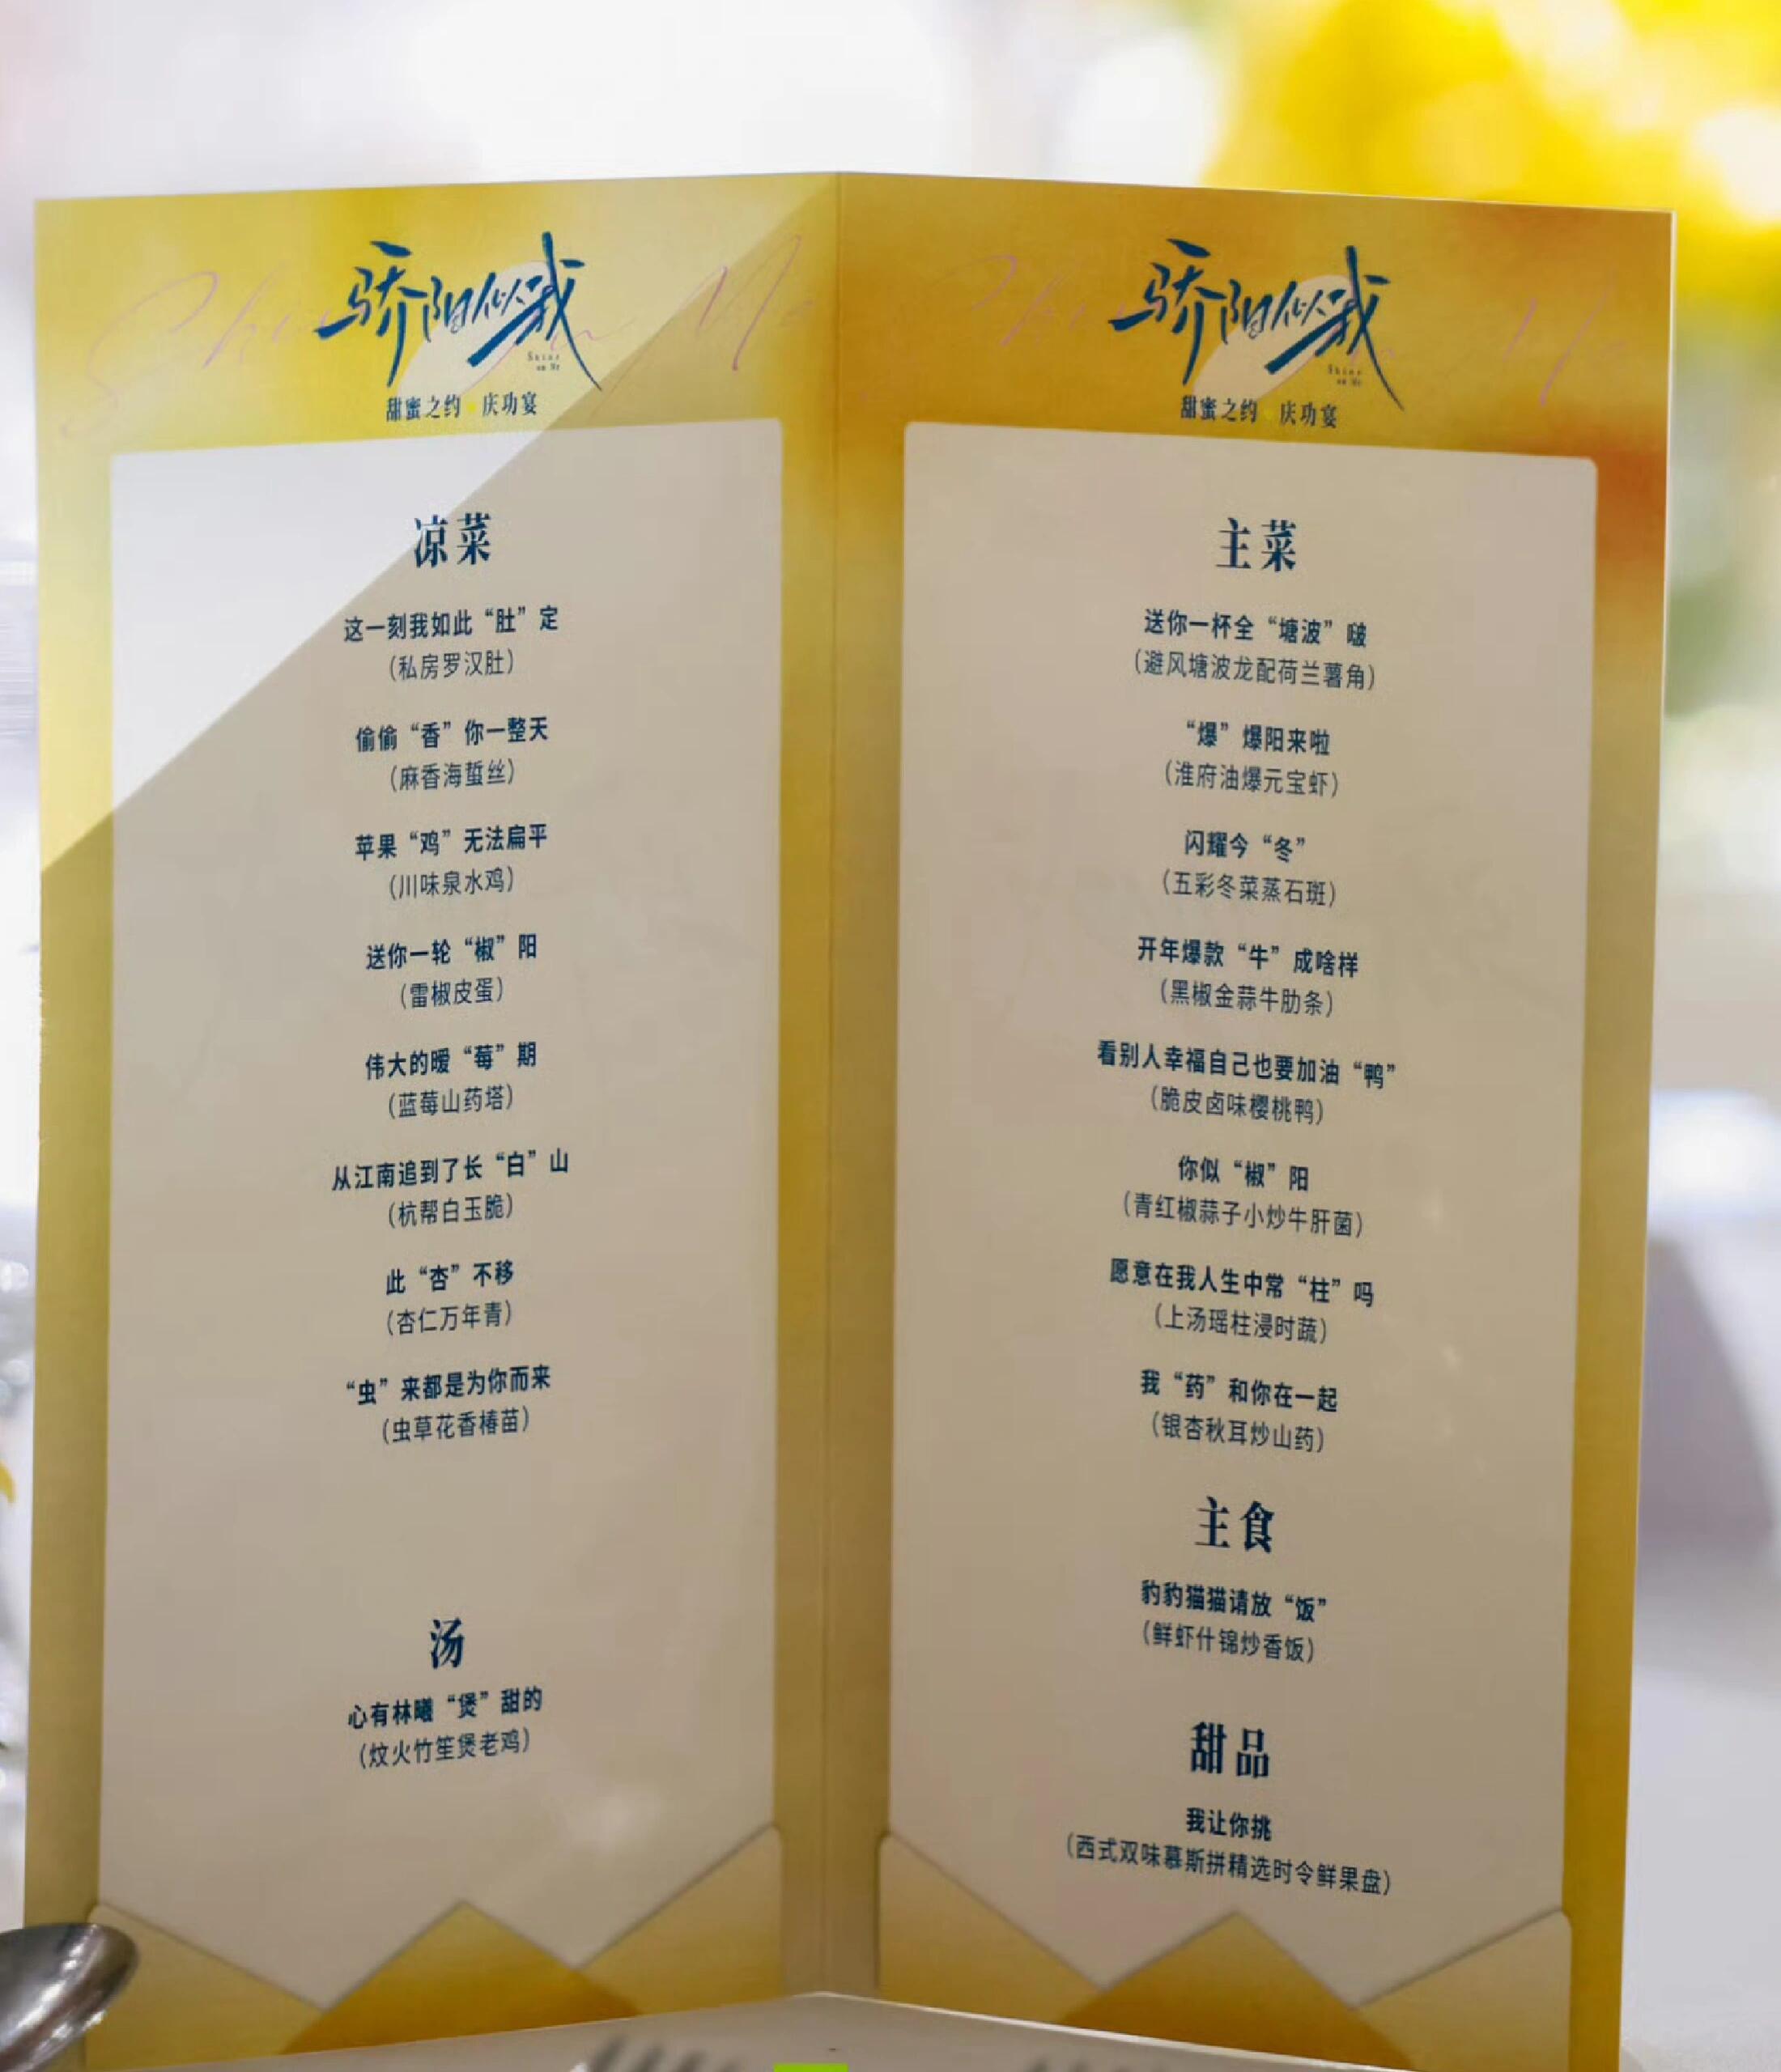 骄阳似我
Shine
on Me
甜蜜之约 庆功宴
凉菜
这一刻我如此“肚”定
（私房罗汉肚）
偷偷“香”你一整天
（麻香海蜇丝）
苹果“鸡”无法扁平
（川味泉水鸡）
送你一轮“椒”阳
（雷椒皮蛋）
伟大的暧“莓”期
（蓝莓山药塔）
从江南追到了长“白”山
（杭帮白玉脆）
此“杏”不移
（杏仁万年青）
“虫”来都是为你而来
（虫草花香椿苗）
汤
心有林曦“煲”甜的
（炆火竹笙煲老鸡）
骄阳似我
Shine
on Me
甜蜜之约 庆功宴
主菜
送你一杯全“塘波”啵
（避风塘波龙配荷兰薯角）
“爆”爆阳来啦
（淮府油爆元宝虾）
闪耀今“冬”
（五彩冬菜蒸石斑）
开年爆款“牛”成啥样
（黑椒金蒜牛肋条）
看别人幸福自己也要加油“鸭”
（脆皮卤味樱桃鸭）
你似“椒”阳
（青红椒蒜子小炒牛肝菌）
愿意在我人生中常“柱”吗
（上汤瑶柱浸时蔬）
我“药”和你在一起
（银杏秋耳炒山药）
主食
豹豹猫猫请放“饭”
（鲜虾什锦炒香饭）
甜品
我让你挑
（西式双味慕斯拼精选时令鲜果盘）